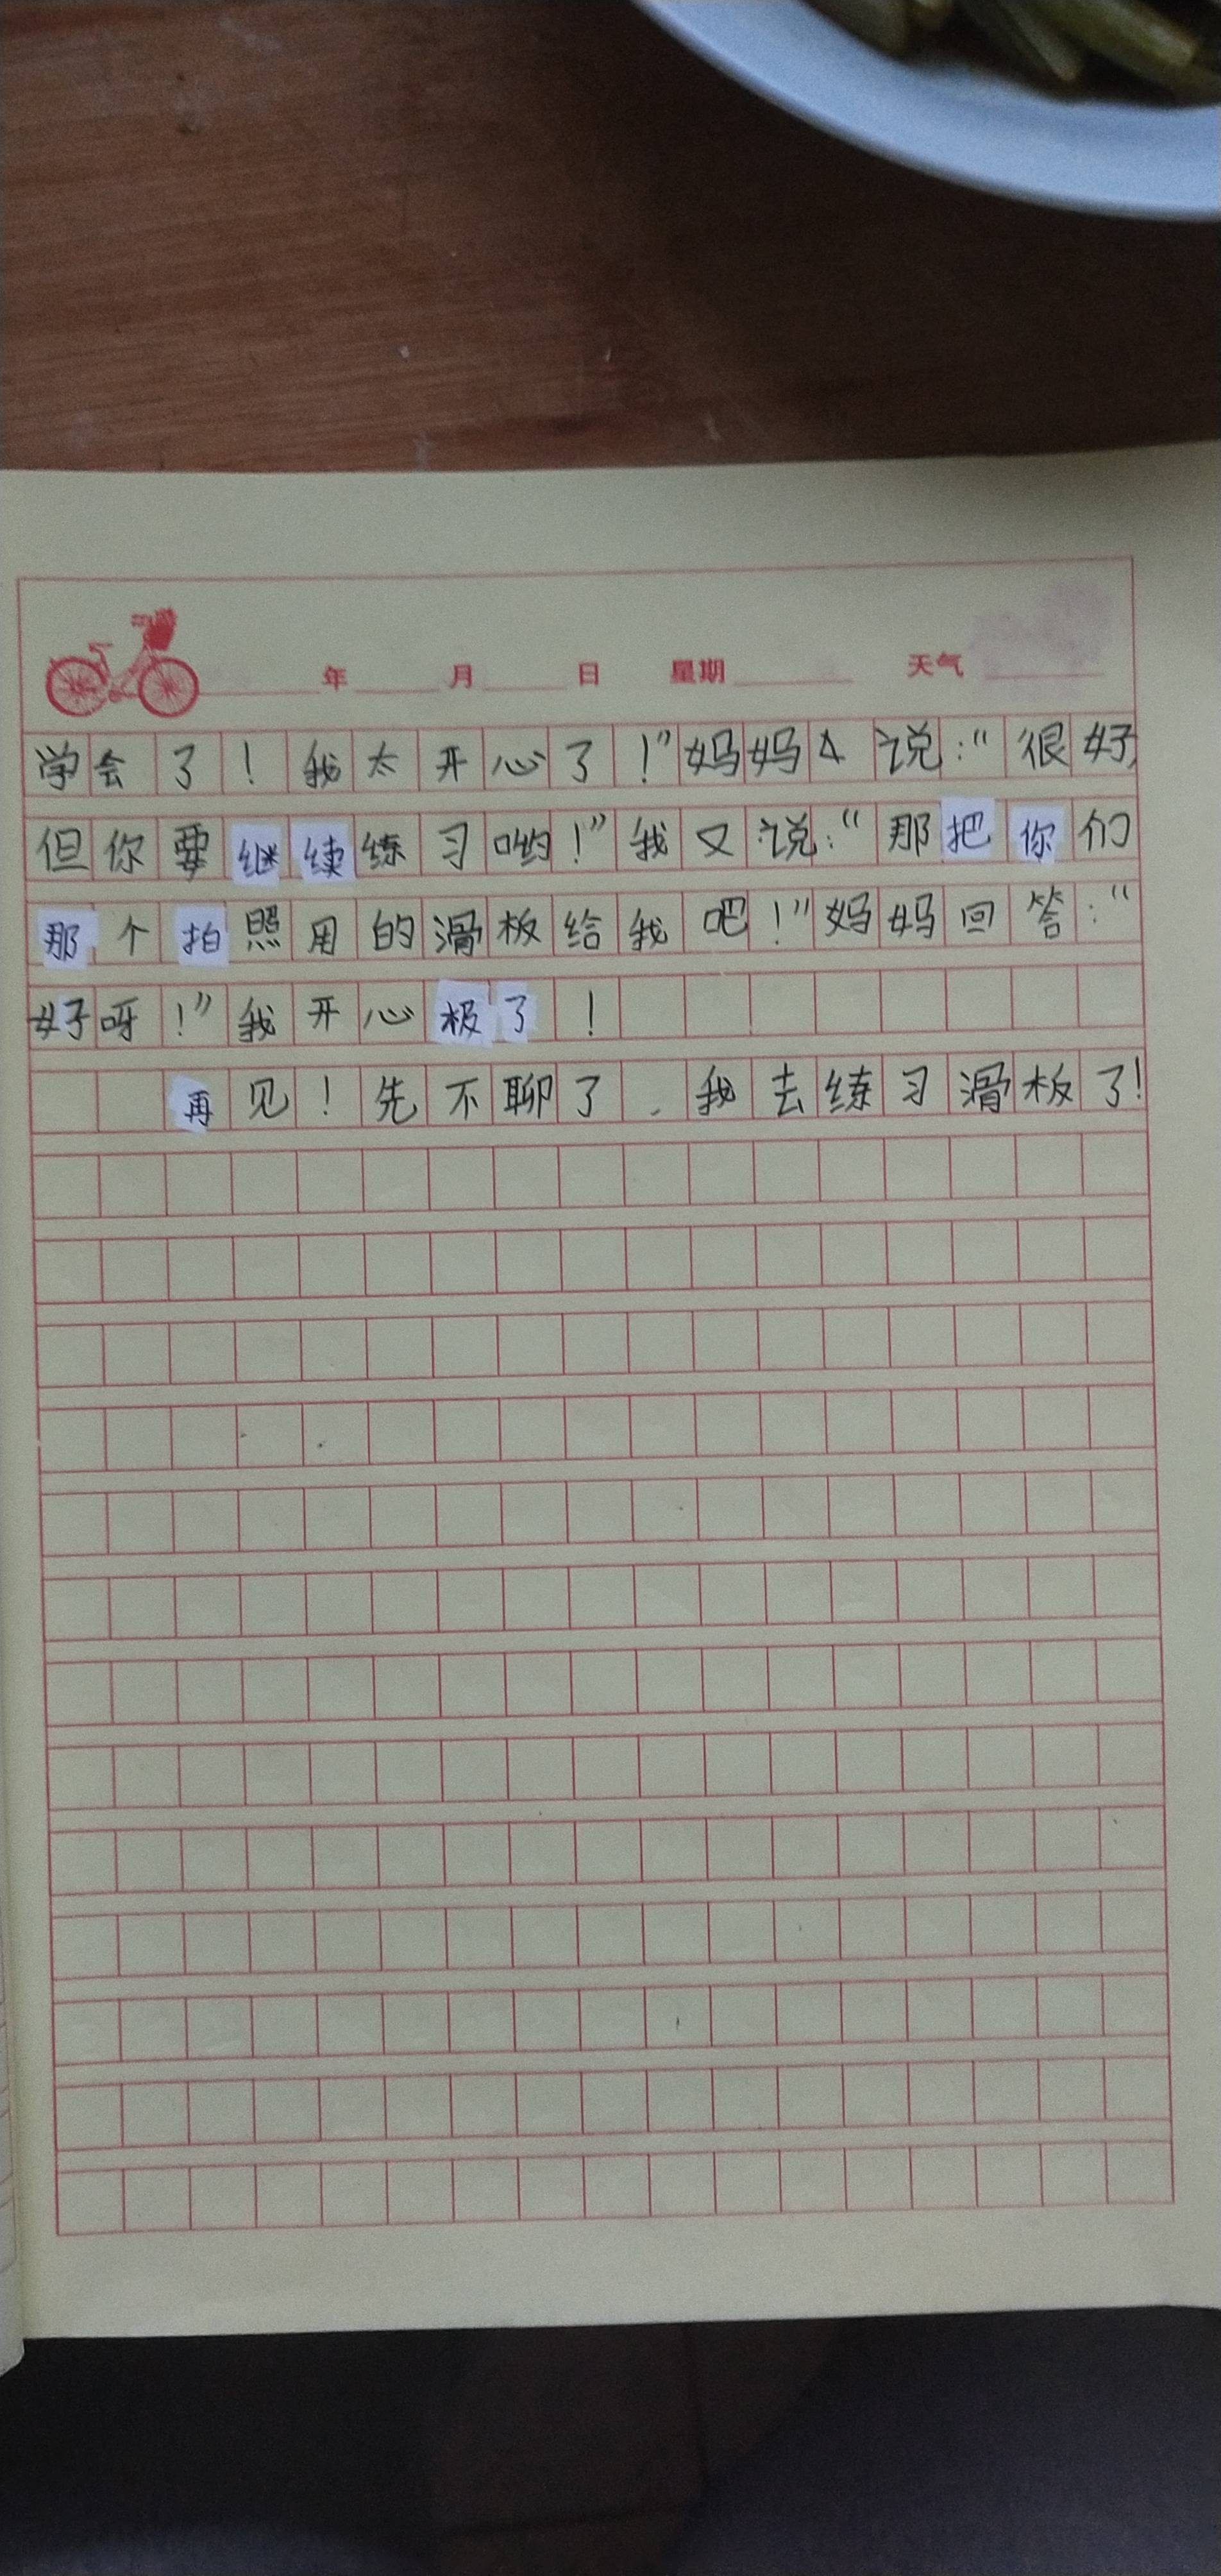 年 月 日 星期 天气
学会了！我太开心了！”妈妈说：“很好，
但你要继续练习哟！”我又说：“那把你们
那个拍照用的滑板给我吧！”妈妈回答：“
好呀！”我开心极了！
再见！先不聊了．我去练习滑板了！